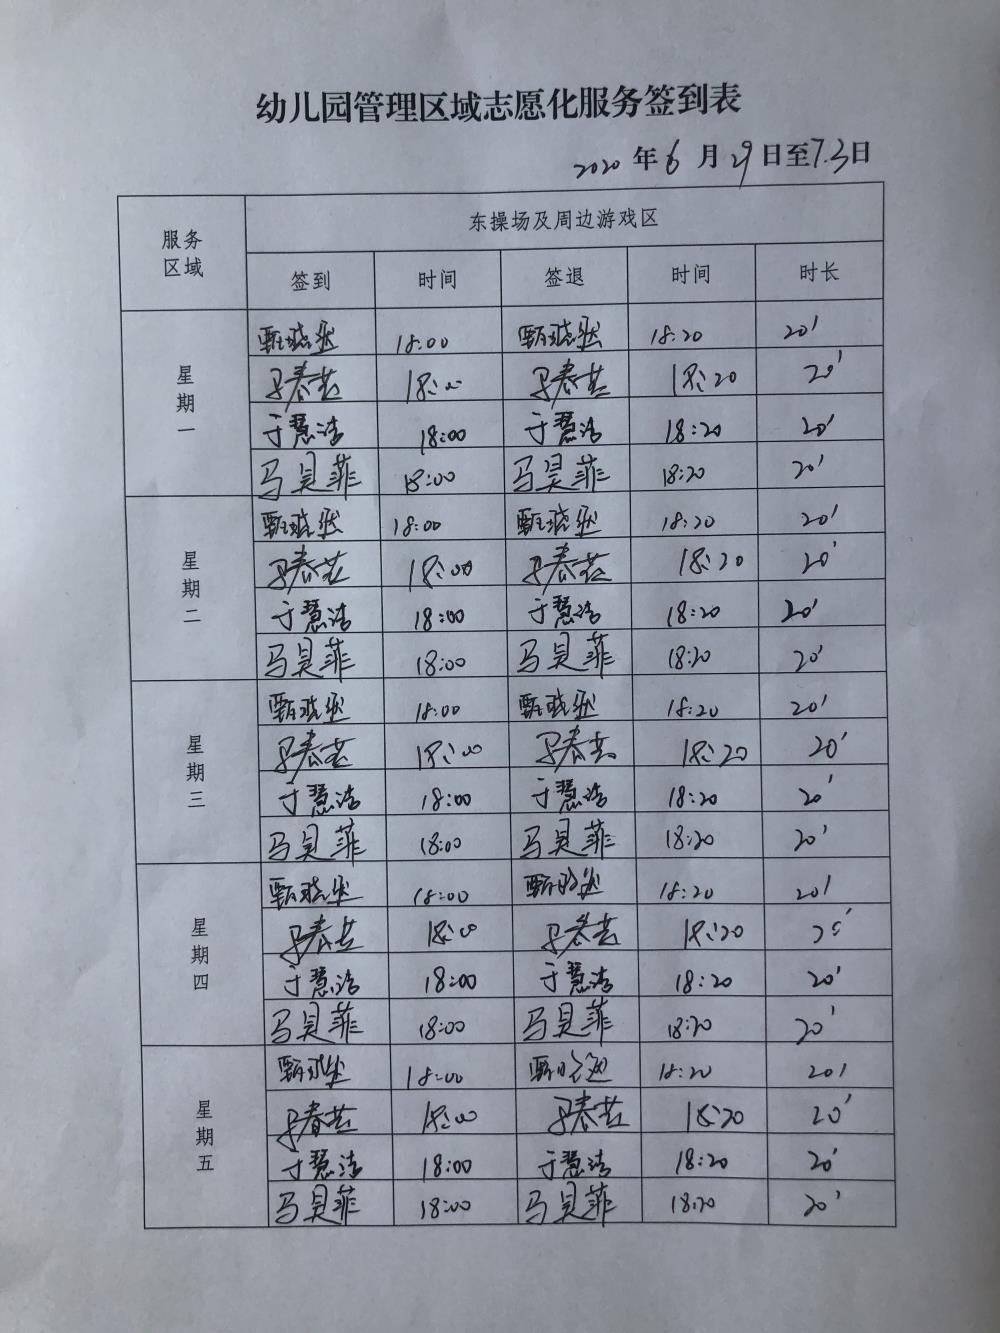 幼儿园管理区域志愿化服务签到表
2020 年 6 月 29 日至 7.3 日
服务区域 东操场及周边游戏区
签到 时间 签退 时间 时长
星期一
甄 18:00 甄 18:20 20'
春 18:00 春 18:20 20'
于慧洁 18:00 于慧洁 18:20 20'
马昊菲 18:00 马昊菲 18:20 20'
星期二
甄 18:00 甄 18:20 20'
春 18:00 春 18:20 20'
于慧洁 18:00 于慧洁 18:20 20'
马昊菲 18:00 马昊菲 18:20 20'
星期三
甄 18:00 甄 18:20 20'
春 18:00 春 18:20 20'
于慧洁 18:00 于慧洁 18:20 20'
马昊菲 18:00 马昊菲 18:20 20'
星期四
甄 18:00 甄 18:20 20'
春 18:00 春 18:20 20'
于慧洁 18:00 于慧洁 18:20 20'
马昊菲 18:00 马昊菲 18:20 20'
星期五
甄 18:00 甄 18:20 20'
春 18:00 春 18:20 20'
于慧洁 18:00 于慧洁 18:20 20'
马昊菲 18:00 马昊菲 18:20 20'